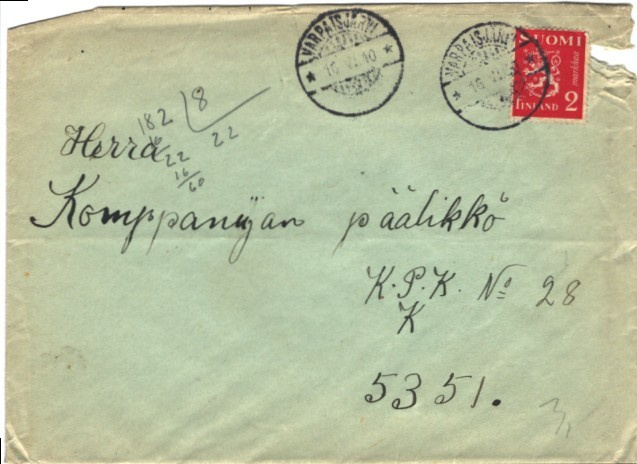 VARPAISJÄRVI
16. VI. 40
VARPAISJÄRVI
16. VI.
SUOMI
markkaa
FINLAND 2
182 8
16 22
22
16
60
Herra
Komppanijan päälikkö
K.P.K. No 28
K
5351.